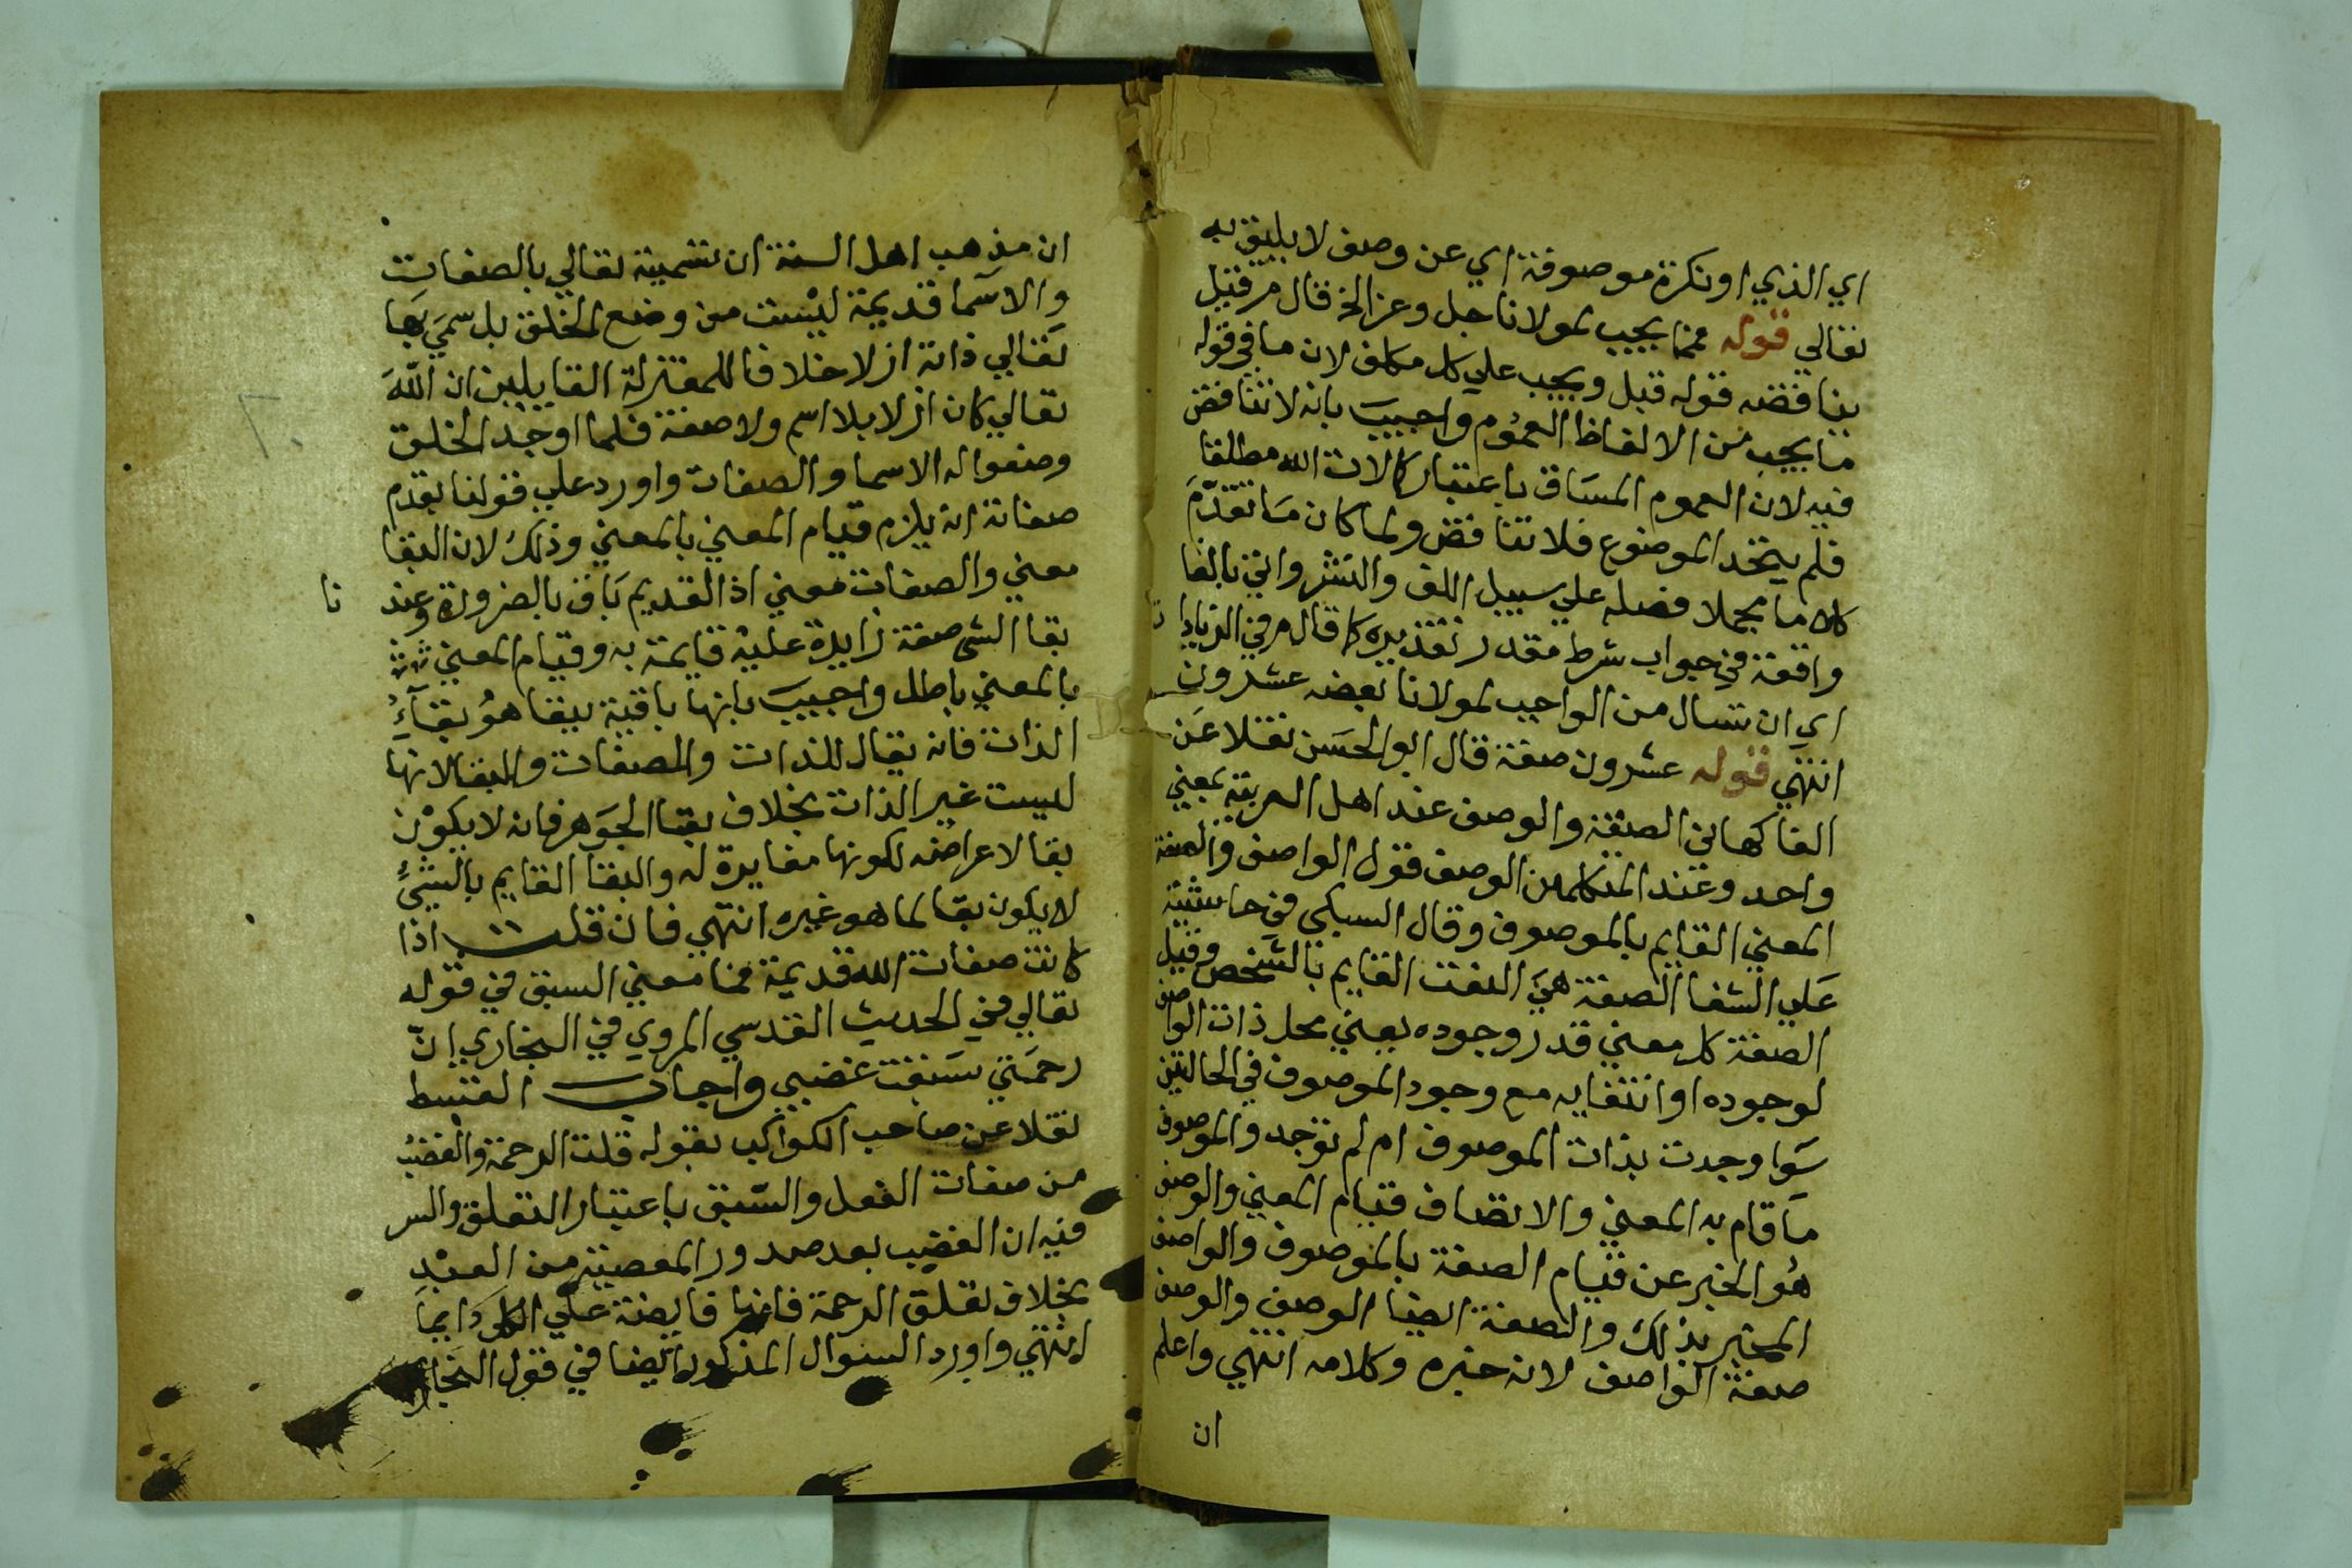 اي الذي او نكرة موصوفة اي عن وصف لا يليق به
تعالي قوله فمما يجب لمولانا جل وعز الخ قال م ر قيل
يناقضه قوله قبل ويجب علي كل مكلف لان ما في قوله
ما يجب من الالفاظ العموم واجيب بانه لا تناقض
فيه لان العموم المساق باعتبار كمالات الله مطلقا
فلم يتحد الموضوع فلا تناقض ولما كان ما تقدم
كلاما مجملا فصله علي سبيل اللف والنشر واتي بالفا
واقعة في جواب شرط مقدر تقديره كما قال م ر في الزيادات
اي ان تسال من الواجب لمولانا بعضه عشرون
انتهي قوله عشرون صفة قال ابو الحسن نقلا عن
الفاكهاني الصفة والوصف عند اهل العربية بمعني
واحد وعند المتكلمين الوصف قول الواصف والصفة
المعني القايم بالموصوف وقال السبكي في حاشية
علي الشفا الصفة هي النعت القايم بالشخص وقيل
الصفة كل معني قدر وجوده بعني محل ذات الواصف
لوجوده او انتفايه مع وجود الموصوف في الحالتين
سوا وجدت بذات الموصوف ام لم توجد والموصوف
ما قام به المعني والاتصاف قيام المعني والوصف
هو الخبر عن قيام الصفة بالموصوف والواصف
المخبر بذلك والصفة ايضا الوصف والوصف
صفة الواصف لانه خبره وكلامه انتهي واعلم
ان
ان مذهب اهل السنة ان تسمية تعالي بالصفات
والاسما قديمة ليست من وضع الخلق بل سمي بها
تعالي ذاته ازلا خلافا للمعتزلة القايلين ان الله
تعالي كان ازلا بلا اسم ولا صفة فلما اوجد الخلق
وضعوا له الاسما والصفات واورد علي قولنا بقدم
صفاته انه يلزم قيام المعني بالمعني وذلك لان البقا
معني والصفات معني اذ القديم باق بالضرورة وعند
نا
بقا الشي صفة زايدة عليه قايمة به وقيام المعني
بالمعني باطل واجيب بانها باقية ببقا هو بقاء
الذات فانه بقال للذات والصفات والبقا لانها
ليست غير الذات بخلاف بقا الجوهر فانه لا يكون
بقا لاعراضه لكونها مغايرة له والبقا القايم بالشيء
لا يكون بقا لما هو غيره انتهي فان قلت اذا
كانت صفات الله قديمة فما معني السبق في قوله
تعالي في الحديث القدسي المروي في البخاري ان
رحمتي سبقت غضبي واجاب القسط
نقلا عن صاحب الكواكب بقوله قلت الرحمة والغضب
من صفات الفعل والسبق باعتبار التعلق والسر
فيه ان الغضب بعد صدور المعصية من العبد
بخلاف تعلق الرحمة فانها فايضة علي الكل دايما
انتهي واورد السوال المذكور ايضا في قول البخاري